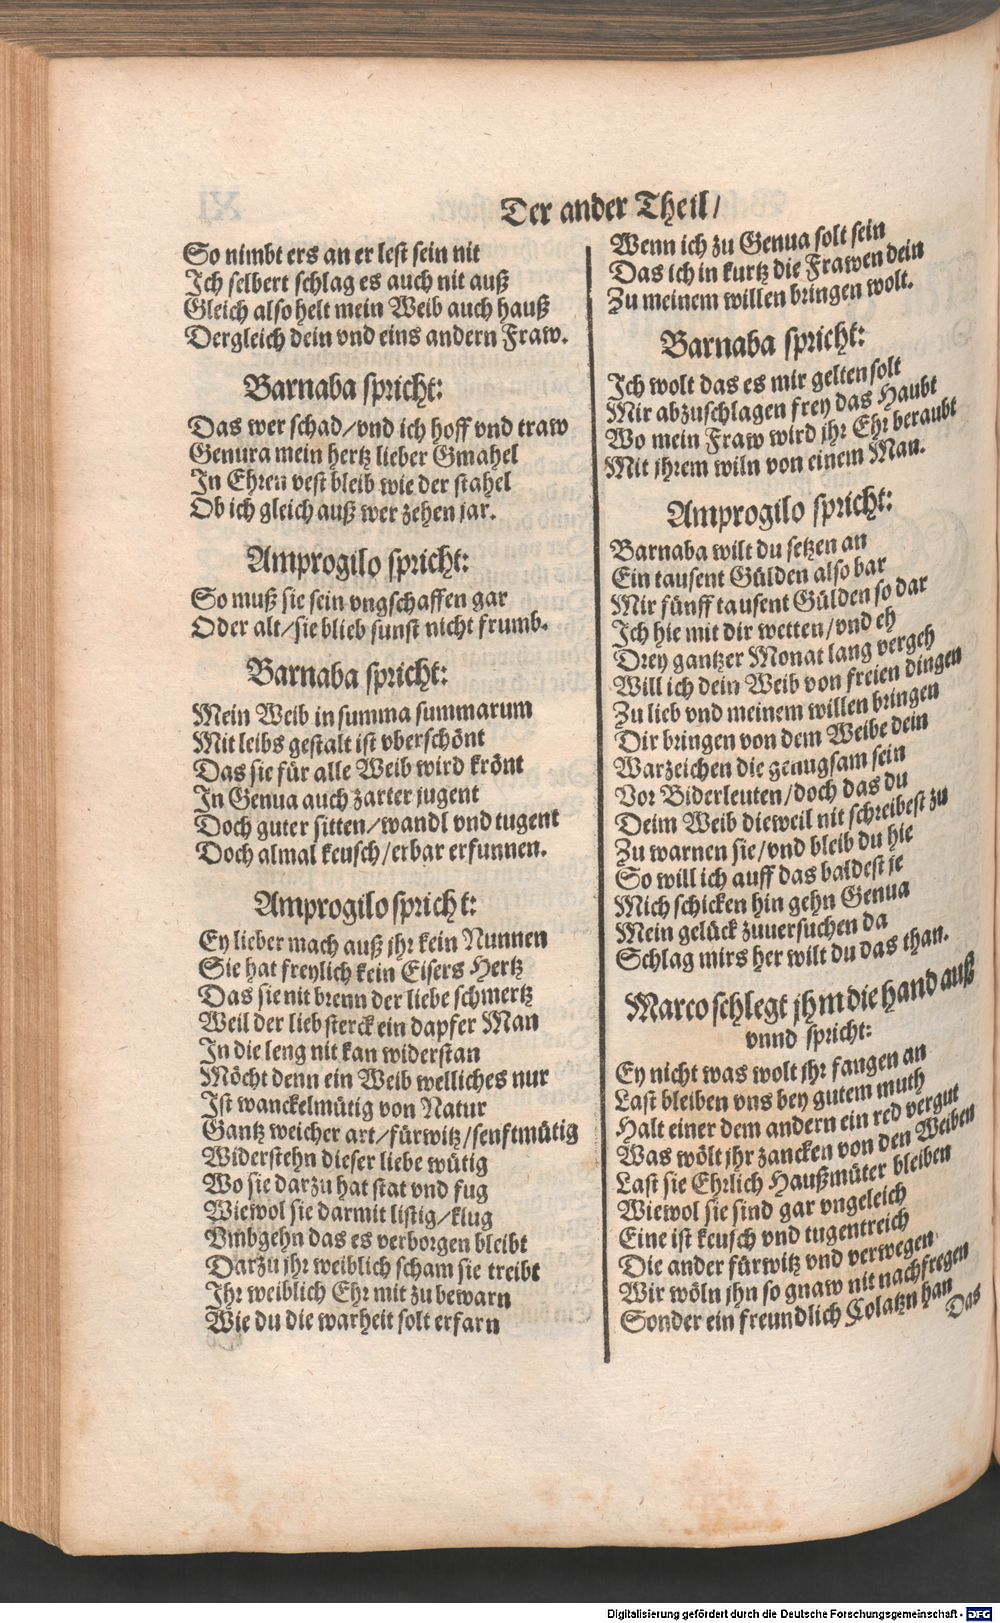 Der ander Theil/
So nimbt ers an er lest sein nit
Ich selbert schlag es auch nit auß
Gleich also helt mein Weib auch hauß
Dergleich dein vnd eins andern Fraw.
Barnaba spricht:
Das wer schad/vnd ich hoff vnd traw
Genura mein hertz lieber Gmahel
In Ehren vest bleib wie der stahel
Ob ich gleich auß wer zehen jar.
Amprogilo spricht:
So muß sie sein vngschaffen gar
Oder alt/sie blieb sunst nicht frumb.
Barnaba spricht:
Mein Weib in summa summarum
Mit leibs gestalt ist vberschönt
Das sie für alle Weib wird krönt
In Genua auch zarter jugent
Doch guter sitten/wandl vnd tugent
Doch almal keusch/erbar erfunnen.
Amprogilo spricht:
Ey lieber mach auß jhr kein Nunnen
Sie hat freylich kein Eisers Hertz
Das sie nit brenn der liebe schmertz
Weil der lieb sterck ein dapfer Man
In die leng nit kan widerstan
Möcht denn ein Weib welliches nur
Ist wanckelmütig von Natur
Gantz weicher art/fürwitz/senftmütig
Widerstehn dieser liebe wütig
Wo sie darzu hat stat vnd fug
Wiewol sie darmit listig/klug
Vmbgehn das es verborgen bleibt
Darzu jhr weiblich scham sie treibt
Ihr weiblich Ehr mit zu bewarn
Wie du die warheit solt erfarn
Wenn ich zu Genua solt sein
Das ich in kurtz die Frawen dein
Zu meinem willen bringen wolt.
Barnaba spricht:
Ich wolt das es mir gelten solt
Mir abzuschlagen frey das Haubt
Wo mein Fraw wird jhr Ehr beraubt
Mit jhrem wiln von einem Man.
Amprogilo spricht:
Barnaba wilt du setzen an
Ein tausent Gülden also bar
Mir fünff tausent Gülden so dar
Ich hie mit dir wetten/vnd eh
Drey gantzer Monat lang vergeh
Will ich dein Weib von freien dingen
Zu lieb vnd meinem willen bringen
Dir bringen von dem Weibe dein
Warzeichen die genugsam sein
Vor Biderleuten/doch das du
Deim Weib dieweil nit schreibest zu
Zu warnen sie/vnd bleib du hie
So will ich auff das baldest je
Mich schicken hin gehn Genua
Mein gelück zuuersuchen da
Schlag mirs her wilt du das than.
Marco schlegt jhm die hand auß
vnnd spricht:
Ey nicht was wolt jhr fangen an
Last bleiben vns bey gutem muth
Halt einer dem andern ein red vergut
Was wölt jhr zancken von den Weiben
Last sie Ehrlich Haußmüter bleiben
Wiewol sie sind gar vngeleich
Eine ist keusch vnd tugentreich
Die ander fürwitz vnd verwegen
Wir wöln jhn so gnaw nit nachfregen
Sonder ein freundlich Colatzn han
Das
Digitalisierung gefördert durch die Deutsche Forschungsgemeinschaft - DFG